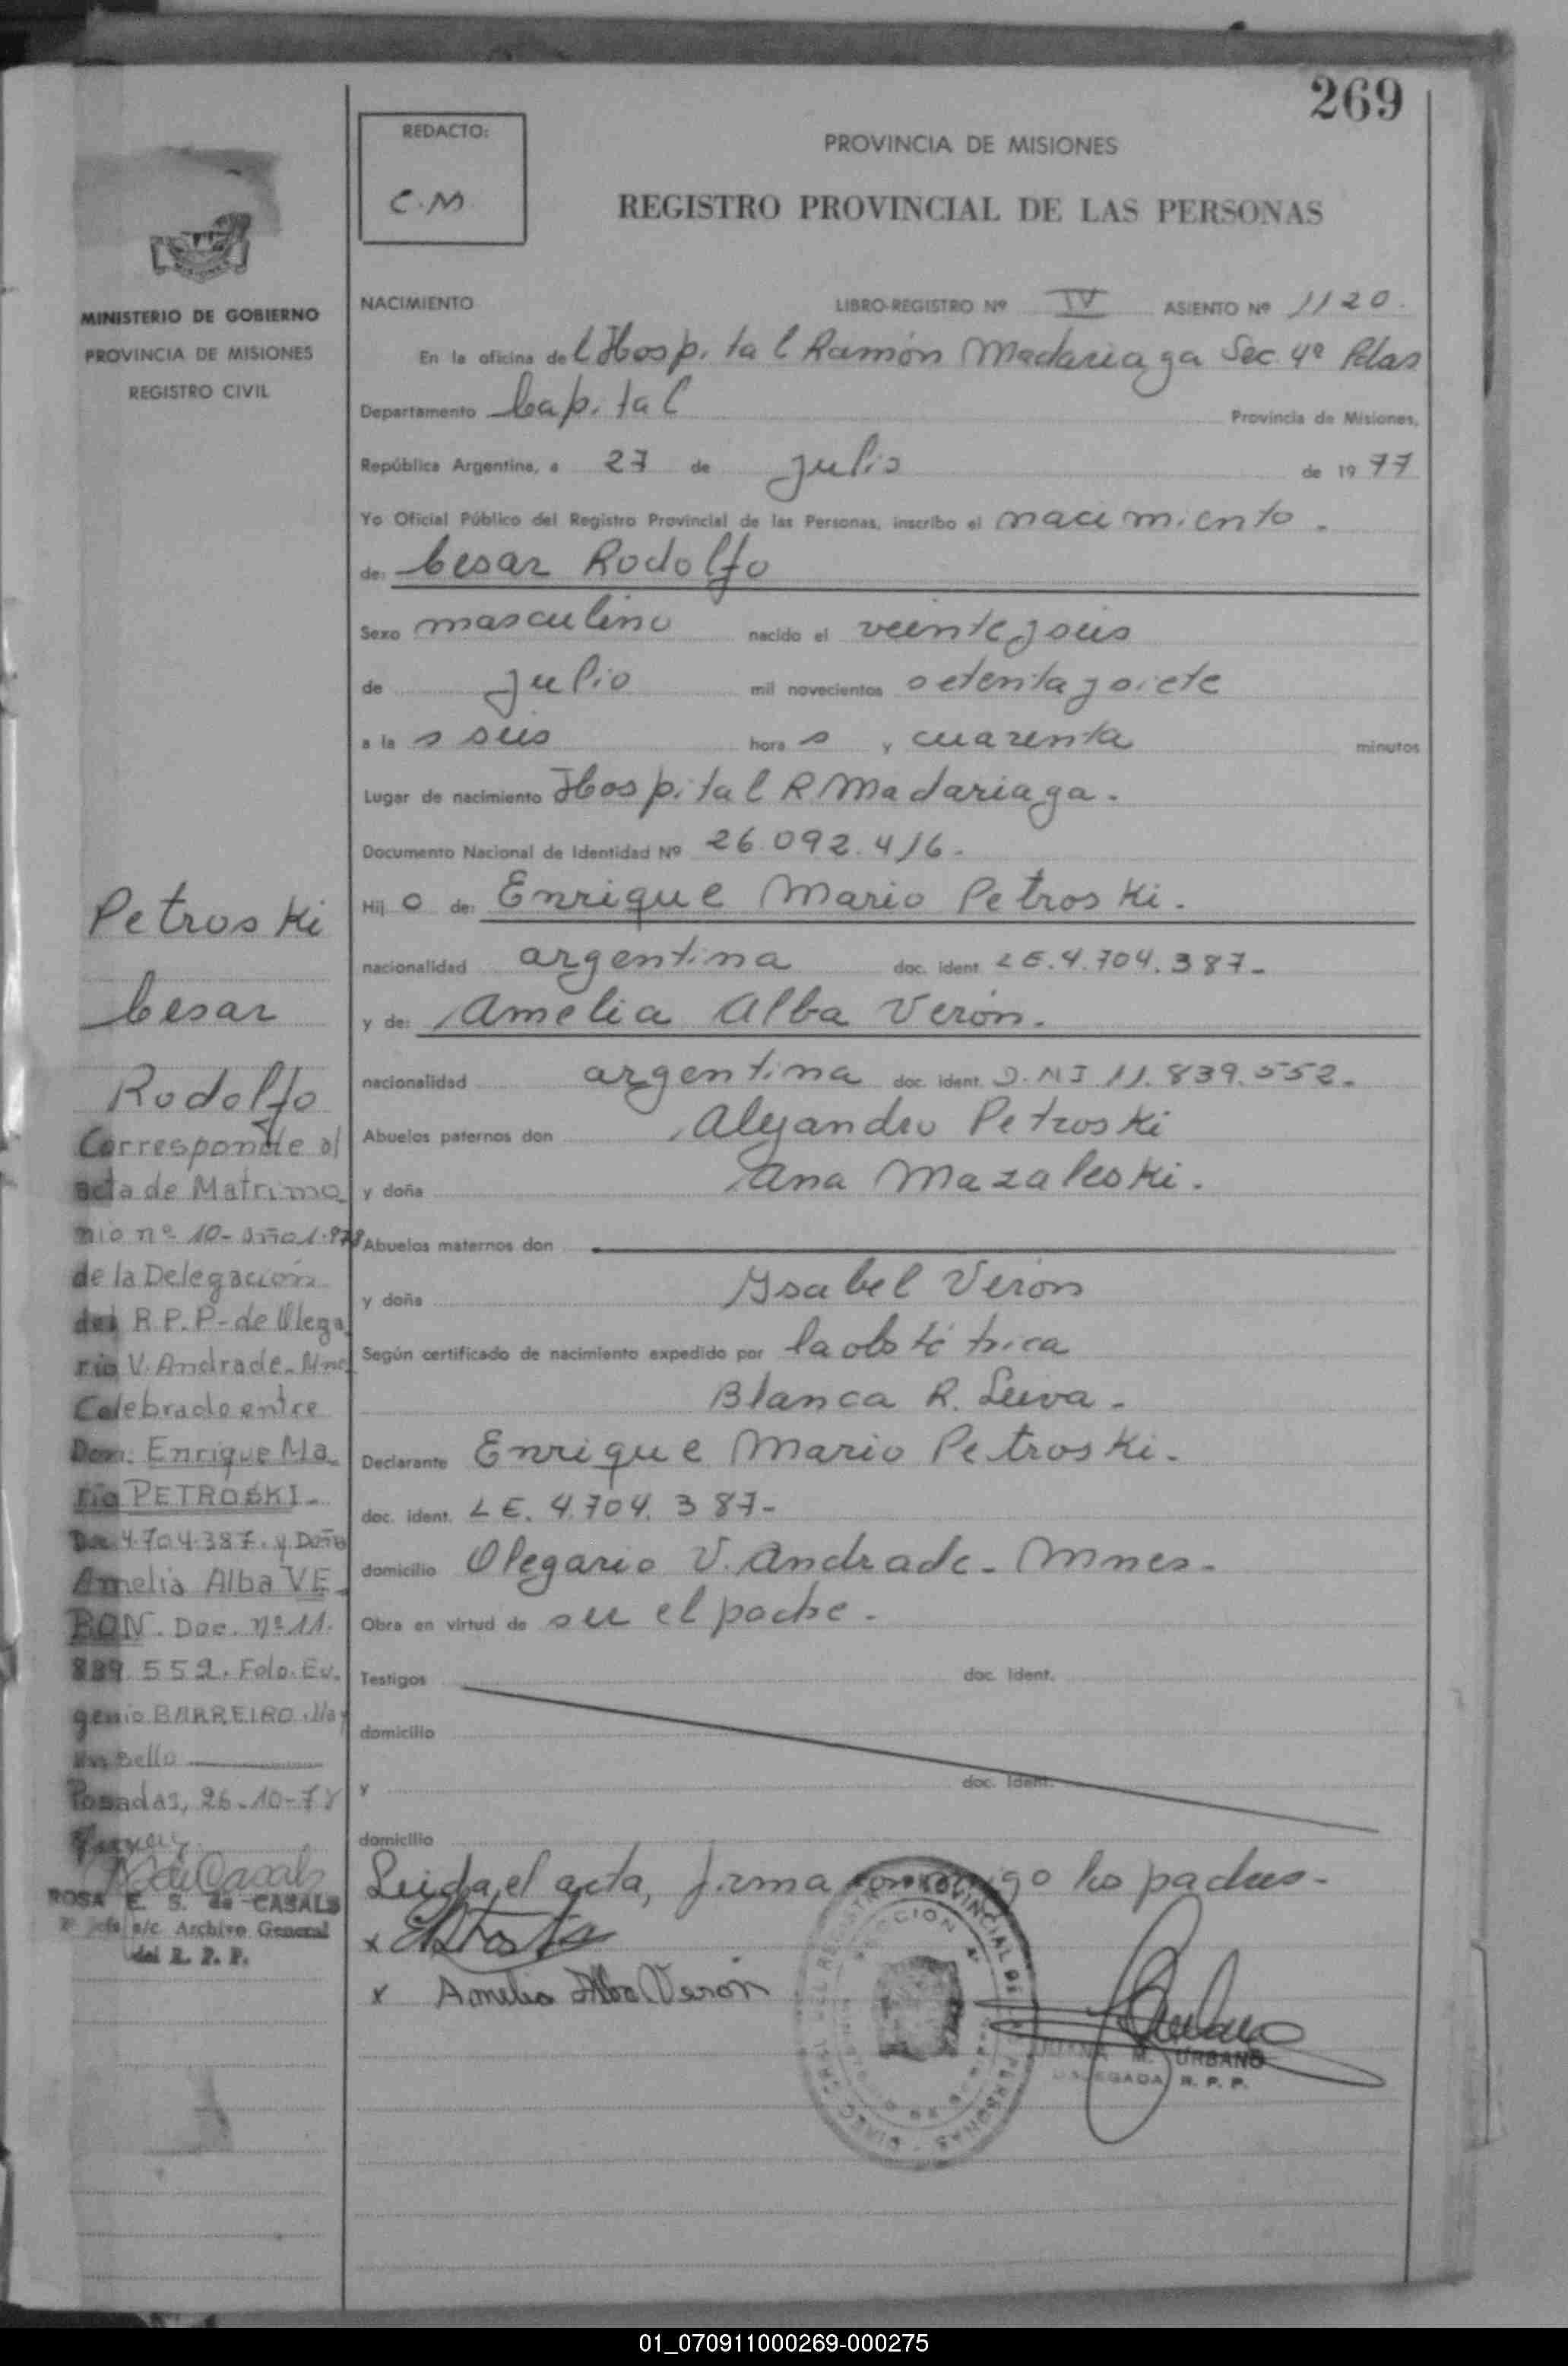 269
REDACTO:
C.M.
PROVINCIA DE MISIONES
REGISTRO PROVINCIAL DE LAS PERSONAS
MINISTERIO DE GOBIERNO
PROVINCIA DE MISIONES
REGISTRO CIVIL
NACIMIENTO LIBRO-REGISTRO Nº IV ASIENTO Nº 1120.
En la oficina del Hospital Ramón Madariaga Sec 4ª Pdas
Departamento Capital Provincia de Misiones,
República Argentina, a 27 de julio de 1977
Yo Oficial Público del Registro Provincial de las Personas, inscribo el nacimiento.
de: Cesar Rodolfo
Sexo masculino nacido el veinteyseis
de julio mil novecientos setentaysiete
a las seis horas y cuarenta minutos
Lugar de nacimiento Hospital R. Madariaga.
Documento Nacional de Identidad Nº 26.092.416.
Hijo de: Enrique Mario Petroski.
nacionalidad argentina doc. ident. LE.4.704.387-
y de: Amelia Alba Verón.
nacionalidad argentina doc. ident. D.N.I 11.839.552.
Abuelos paternos don Alejandro Petroski
y doña Ana Mazaleski.
Abuelos maternos don
y doña Ysabel Verón
Según certificado de nacimiento expedido por la obstétrica
Blanca R. Leiva.
Declarante Enrique Mario Petroski.
doc. ident. LE. 4.704.387-
domicilio Olegario V. Andrade- Mnes-
Obra en virtud de ser el padre.
Testigos doc. ident.
domicilio
y doc. ident.
domicilio
Leida el acta, firma conmigo los padres-
x
x Amelia Alba Verón
M. URBANO
DELEGADA R. P. P.
Petroski
Cesar
Rodolfo
Corresponde al
acta de Matrimo-
nio nº 10- año 1.978
de la Delegación
del R.P.P- de Olega
rio V. Andrade- Mnes
Celebrado entre
Don: Enrique Ma-
rio PETROSKI-
Doc 4.704.387. y Doña
Amelia Alba VE-
RON. Doc. nº 11.
839.552. Fdo. Eu-
genio BARREIRO. Hay
un Sello
Posadas, 26-10-78
ROSA E. S. de CASALS
a/c Archivo General
del R. P. P.
01_070911000269-000275